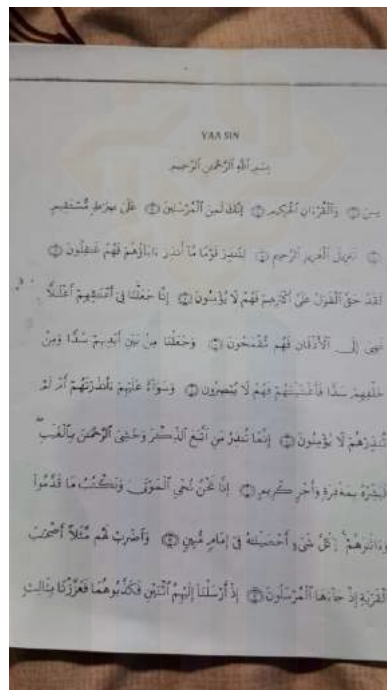 YAA SIN
بِسْمِ اللَّهِ الرَّحْمَٰنِ الرَّحِيمِ
يسٓ ۝ وَالْقُرْءَانِ الْحَكِيمِ ۝ إِنَّكَ لَمِنَ الْمُرْسَلِينَ ۝ عَلَىٰ صِرَاطٍ مُّسْتَقِيمٍ
۝ تَنزِيلَ الْعَزِيزِ الرَّحِيمِ ۝ لِتُنذِرَ قَوْمًا مَّا أُنذِرَ ءَابَاؤُهُمْ فَهُمْ غَافِلُونَ ۝
لَقَدْ حَقَّ الْقَوْلُ عَلَىٰ أَكْثَرِهِمْ فَهُمْ لَا يُؤْمِنُونَ ۝ إِنَّا جَعَلْنَا فِي أَعْنَاقِهِمْ أَغْلَالًا
فَهِيَ إِلَى الْأَذْقَانِ فَهُم مُّقْمَحُونَ ۝ وَجَعَلْنَا مِن بَيْنِ أَيْدِيهِمْ سَدًّا وَمِنْ
خَلْفِهِمْ سَدًّا فَأَغْشَيْنَاهُمْ فَهُمْ لَا يُبْصِرُونَ ۝ وَسَوَاءٌ عَلَيْهِمْ ءَأَنذَرْتَهُمْ أَمْ لَمْ
تُنذِرْهُمْ لَا يُؤْمِنُونَ ۝ إِنَّمَا تُنذِرُ مَنِ اتَّبَعَ الذِّكْرَ وَخَشِيَ الرَّحْمَٰنَ بِالْغَيْبِ ۖ
فَبَشِّرْهُ بِمَغْفِرَةٍ وَأَجْرٍ كَرِيمٍ ۝ إِنَّا نَحْنُ نُحْيِ الْمَوْتَىٰ وَنَكْتُبُ مَا قَدَّمُوا
وَءَاثَارَهُمْ ۚ وَكُلَّ شَيْءٍ أَحْصَيْنَاهُ فِي إِمَامٍ مُّبِينٍ ۝ وَاضْرِبْ لَهُم مَّثَلًا أَصْحَابَ
الْقَرْيَةِ إِذْ جَاءَهَا الْمُرْسَلُونَ ۝ إِذْ أَرْسَلْنَا إِلَيْهِمُ اثْنَيْنِ فَكَذَّبُوهُمَا فَعَزَّزْنَا بِثَالِثٍ